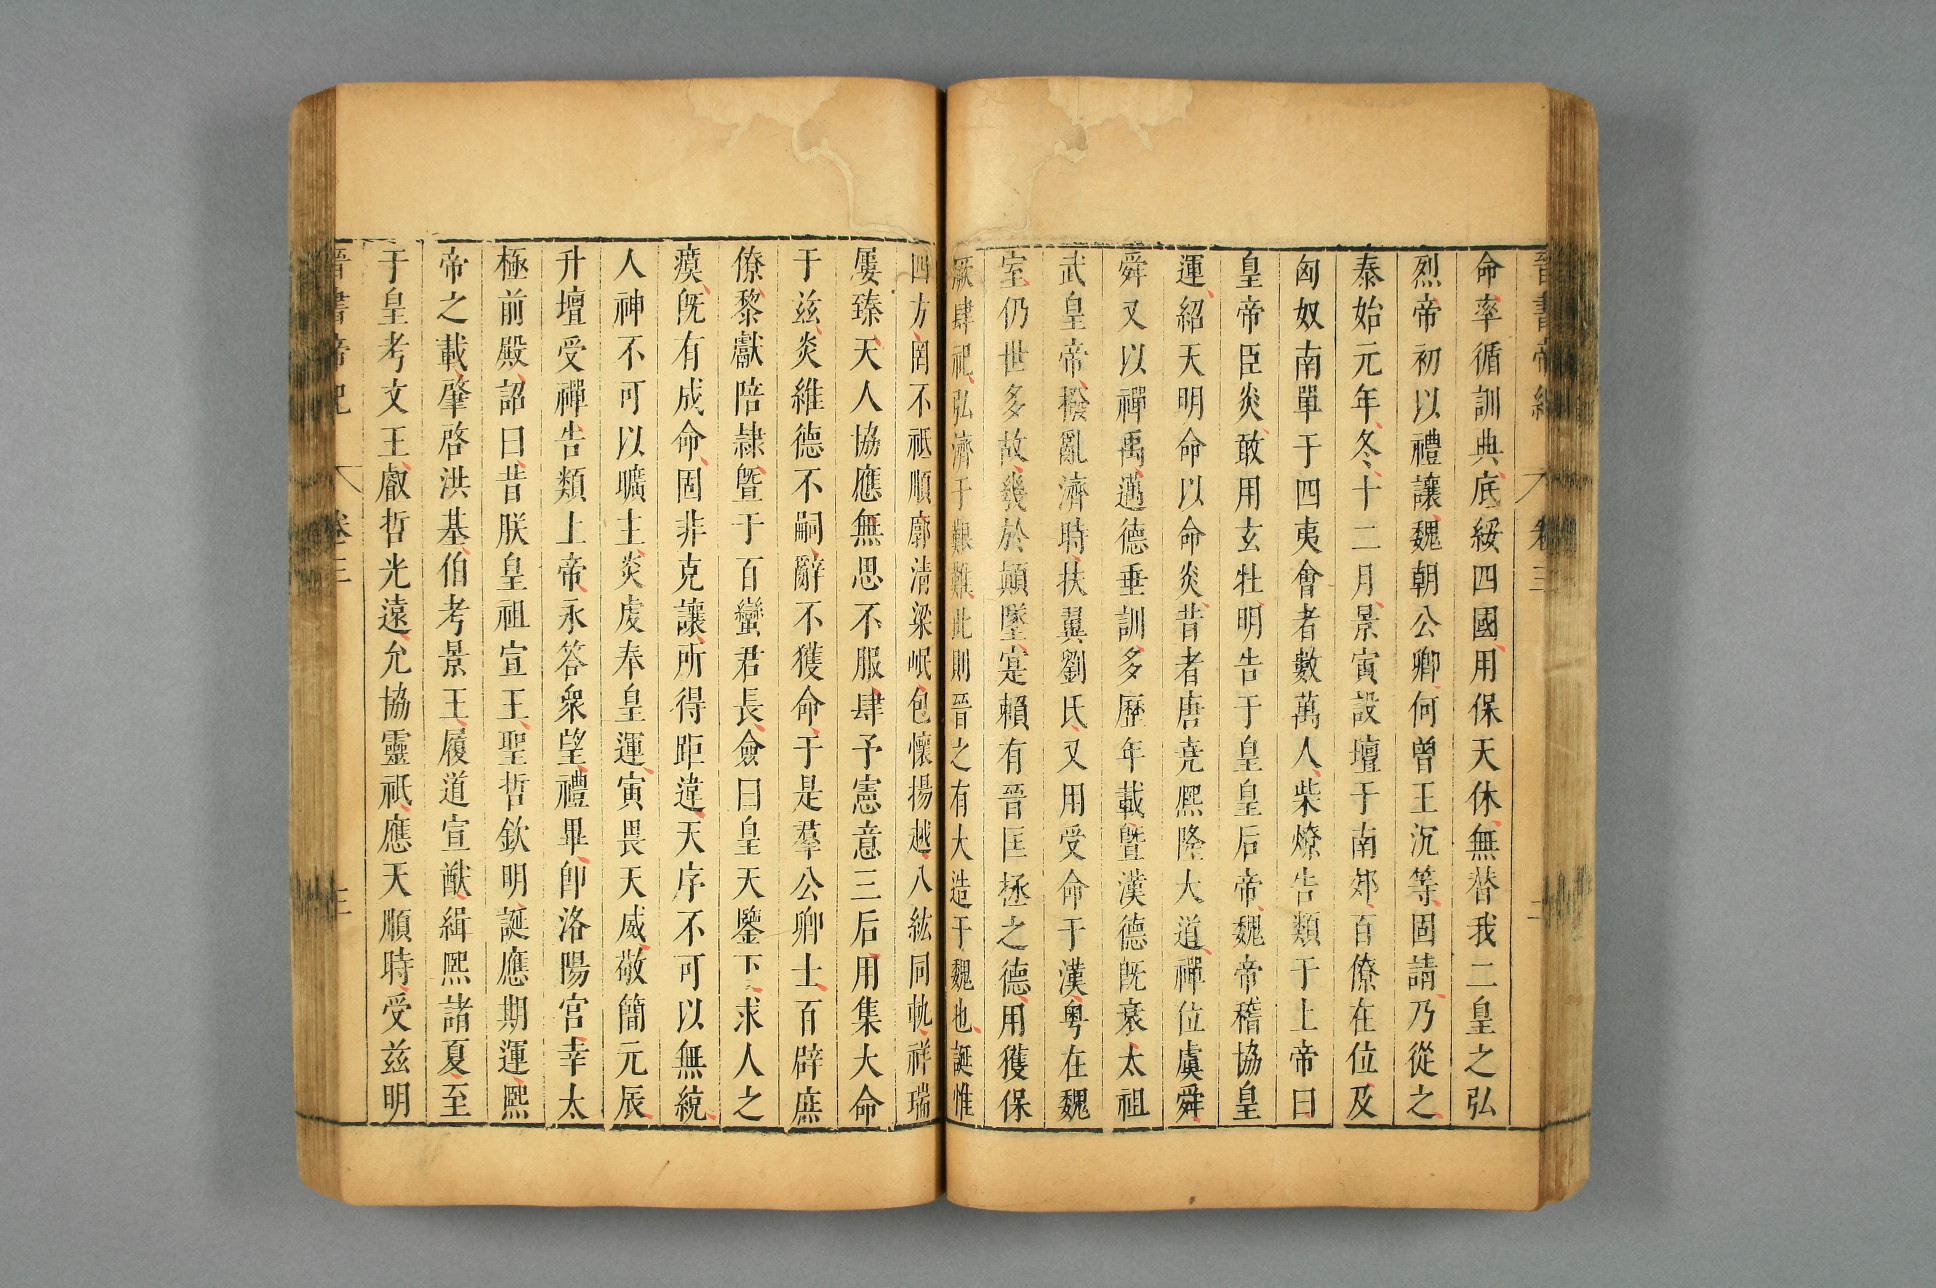 晉書帝紀 卷三 二
命率循訓典底綏四國用保天休無替我二皇之弘
烈帝初以禮讓魏朝公卿何曾王沉等固請乃從之
泰始元年冬十二月景寅設壇于南郊百僚在位及
匈奴南單于四夷會者數萬人柴燎告類于上帝曰
皇帝臣炎敢用玄牡明告于皇皇后帝魏帝稽協皇
運紹天明命以命炎昔者唐堯熙隆大道禪位虞舜
舜又以禪禹邁德垂訓多歷年載曁漢德旣衰太祖
武皇帝撥亂濟時扶翼劉氏又用受命于漢粤在魏
室仍世多故幾於顛墜寔賴有晉匡拯之德用獲保
厥肆祀弘濟于艱難此則晉之有大造于魏也誕惟
四方罔不祗順廓淸梁岷包懷揚越八紘同軌祥瑞
屢臻天人協應無思不服肆予憲章三后用集大命
于兹炎維德不嗣辭不獲命于是羣公卿士百辟庶
僚黎獻陪隷曁于百蠻君長僉曰皇天鑒下求人之
瘼旣有成命固非克讓所得距違天序不可以無統
人神不可以曠主炎虔奉皇運寅畏天威敬簡元辰
升壇受禪告類上帝永答衆望禮畢卽洛陽宮幸太
極前殿詔曰昔朕皇祖宣王聖哲欽明誕應期運熙
帝之載肇啓洪基伯考景王履道宣猷緝熙諸夏至
于皇考文王叡哲光遠允協靈祇應天順時受兹明
晉書帝紀 卷三 三